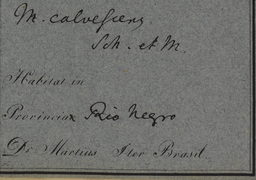 M. calvescens
Sch. et M.
Habitat in
Provincia Rio Negro
Dr Martius Iter Brasil.